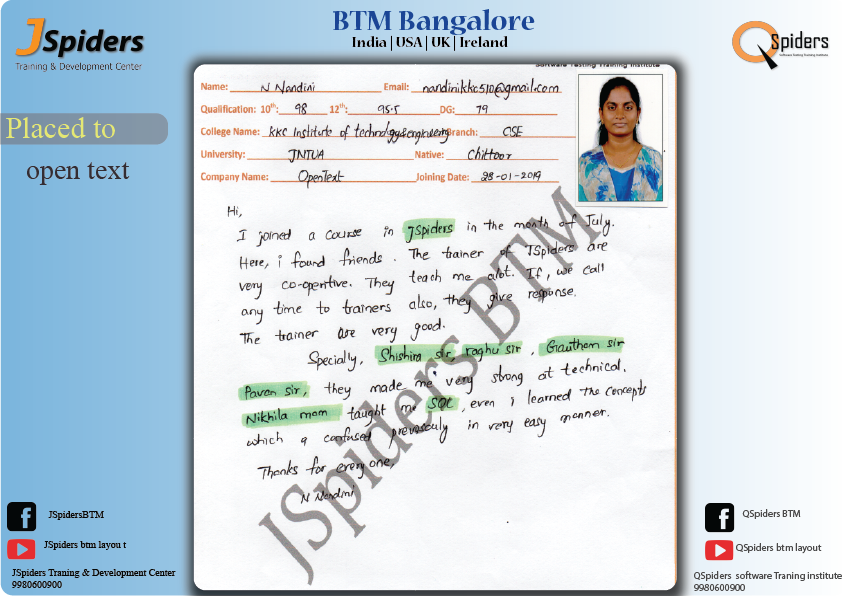 BTM Bangalore
India | USA | UK | Ireland
JSpiders
Training & Development Center
QSpiders
Software Testing Training Institute
Placed to
open text
Software Testing Training Institute
Name: N Nandini Email: nandinikkc510@gmail.com
Qualification: 10th: 98 12th: 95.5 DG: 79
College Name: KKC Institute of technology&engineering Branch: CSE
University: JNTUA Native: Chittoor
Company Name: OpenText Joining Date: 28-01-2019
Hi,
I joined a course in JSpiders in the month of July.
Here, i found friends. The trainer of JSpiders are
very co-opertive. They teach me alot. If, we call
any time to trainers also, they give response.
The trainer are very good.
Specially, Shishira sir, raghu sir, Gautham sir
Pavan sir, they made me very strong at technical.
Nikhila mam taught me SQL, even i learned the concepts
which q confused prevously in very easy manner.
Thanks for every one,
N Nandini
JSpiders BTM
JSpidersBTM
JSpiders btm layou t
JSpiders Traning & Development Center
9980600900
QSpiders BTM
QSpiders btm layout
QSpiders software Traning institute
9980600900